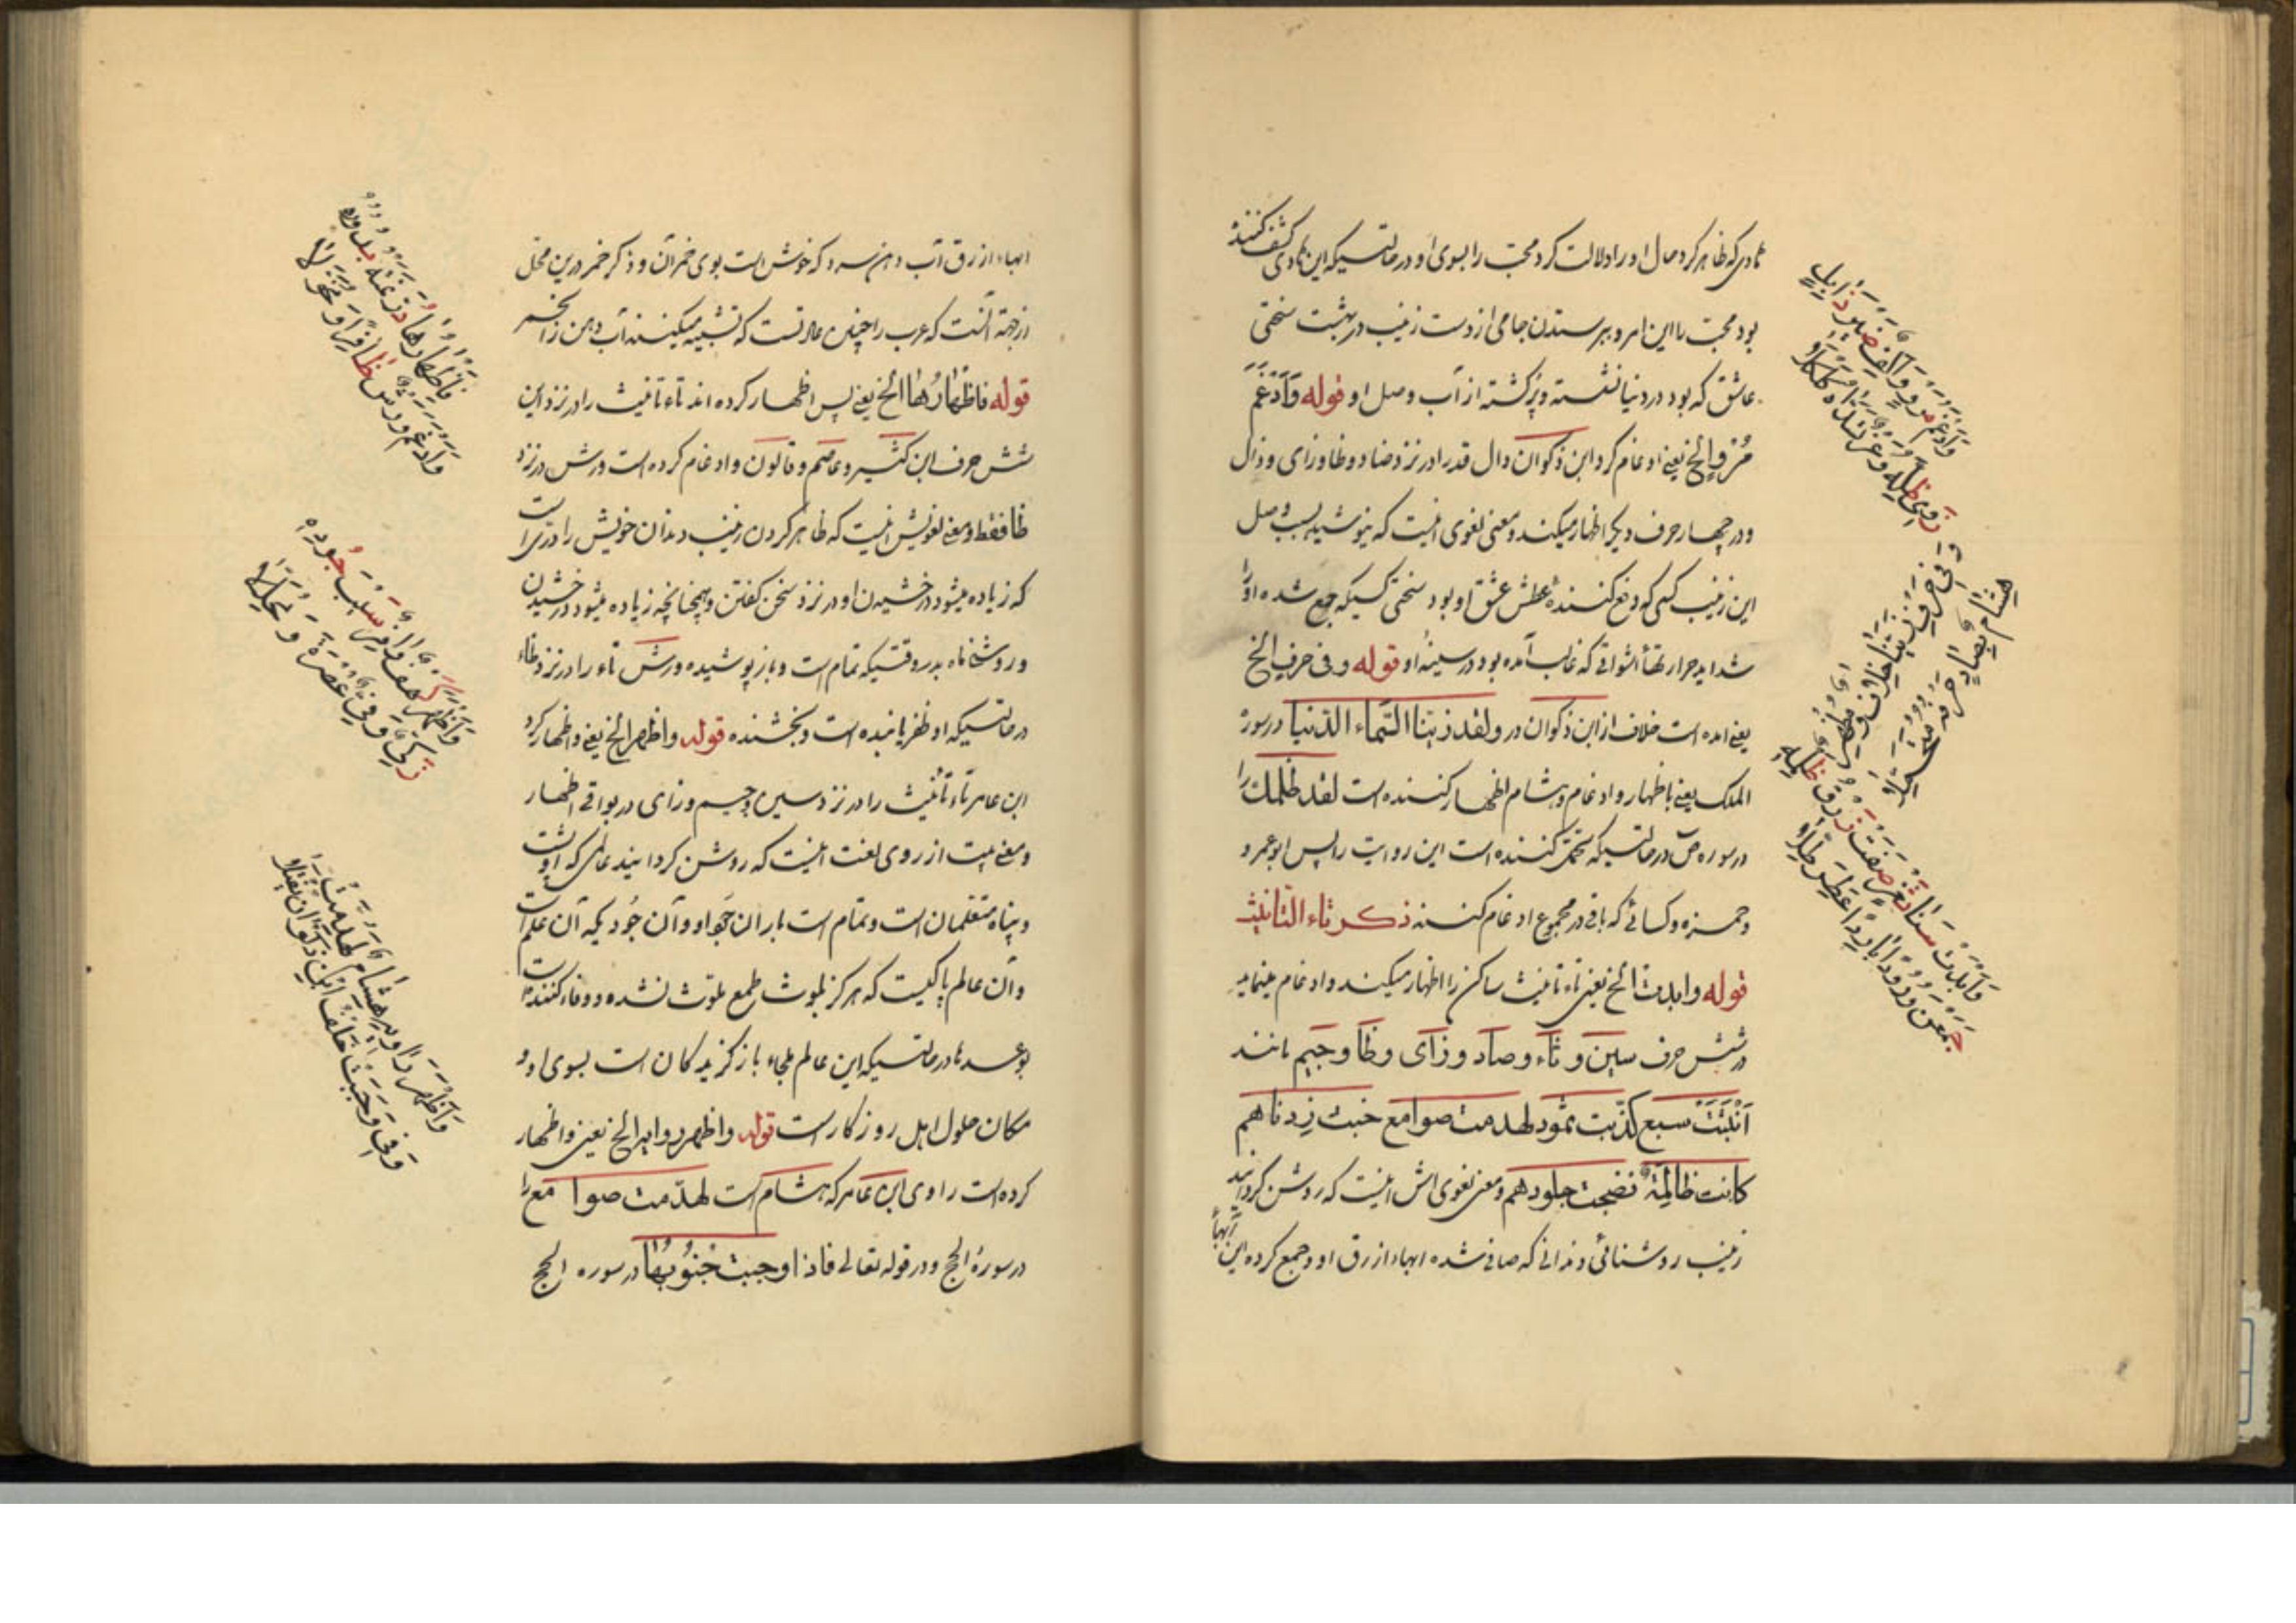 بادی که ظاهر کرد حال او را دلالت کرد محب را بسوی او در حالتیکه این بادی کشف کننده
بود محب را این امر و ببرستدن جامی از دست زینب در بهشت سختی
عاشق که بود در دنیا نشسته و پرکشته از آب وصل او قوله وَاَدْغَمَ
مُرْوٍ الخ یعنی ادغام کرد ابن ذکوان دال قد را در نزد ضاد و ظا و زای و ذال
و در چهار حرف دیگر اظهار میکند و معنی لغوی اینست که بپوشید بسبب وصل
این زینب کسی که دفع کننده عطش عشق او بود سختی کسیکه جمع شده او را
شداید حرارتهاء اشواقی که غالب آمده بود در سینهٔ او قوله وفی حرف الخ
یعنی آمده است خلاف از ابن ذکوان در ولقد زینا السّماء الدنیا در سورهٔ
الملک یعنی باظهار و ادغام و هشام اظهار کننده است لقد ظلمك را
در سوره ص در حالتیکه تحمل کننده است این روایت را پس ابو عمرو
و حمزه و کسائی که باقی در مجموع ادغام کنند ذکر تاء التانیث
قوله وابدت الخ یعنی تاء تانیث ساکن را اظهار میکنند و ادغام مینمایند
در شش حرف سین و ثاء و صاد و زای و ظا و جیم مانند
اَنْبَتَتْ سبع کذّبت ثمود لهدمت صوامع خبت زدناهم
کانت ظالمة نضجت جلودهم و معنی لغوی اش اینست که روشن گردانید
زینب روشنائی دندانی که صافی شده ابهاء از رق او و جمع کرده این آبها
وَاَدْغَمَ مُرْوٍ وَاكِفٌ ضَيْرَ ذَابِلٍ
زَوىٰ ظِلَّهُ وَغْرٌ تَسَدَّاهُ كَلْكَلَا
وَفِي حَرْفِ زَيَّنَّا خِلَافٌ وَمُظْهِرٌ
هِشَامٌ بِصَادٍ حَرْفَهُ مُتَحَمِّلَا
وَاَبْدَتْ سَنَا ثَغْرٍ صَفَتْ زُرْقُ ظَلْمِهِ
جَمَعْنَ وُرُودًا بَارِدًا عَطِرَ الطِّلَا
ابهاء از رق آب دهن سرد که خوش است بوی خمر آن و ذکر خمر درین محل
ازجهة آنست که عرب را چنین عادتست که تشبیه میکنند آب دهن را بخمر
قوله فاظهارُها الخ یعنی پس اظهار کرده اند تاء تانیث را در نزد این
شش حرف ابن کثیر و عاصم و قالون و ادغام کرده است ورش در نزد
ظا فقط و معنی لغویش اینست که ظاهر کردن زینب دندان خویش را دری است
که زیاده میشود درخشیدن او در نزد سخن گفتن و همچنانچه زیاده میشود درخشیدن
و روشنی ماه بدر وقتیکه تمام است و باز پوشیده ورش تاء را در نزد ظاء
در حالتیکه او ظفر یابنده است و بخشنده قوله واظهر الخ یعنی و اظهار کرد
ابن عامر تاء تأنیث را در نزد سین و جیم و زای در بواقی اظهار
و معنی بیت از روی لغت اینست که روشن گردانید عالمی که او پشت
و پناه متعلمان است و تمام است باران جود او و آن جُودیکه آن علم است
و آن عالم پاکیست که هرگز بلوث طمع ملوث نشده و وفا کننده است
بوعدها در حالتیکه این عالم ملجاء بازگزیدگان است بسوی او و
مکان حلول اهل روزگار است قوله واظهر راویه الخ یعنی و اظهار
کرده است راوی ابن عامر که هشام است لهدّمت صوامع را
در سورهٔ الحج و در قوله تعالی فاذا وجبت جُنُوبُها در سوره الحج
فَاِظْهَارُهَا دُرٌّ نَمَتْهُ بُدُورُهُ
وَاَدْغَمَ وَرْشٌ ظَافِرًا وَمُخَوِّلَا
وَاَظْهَرَ كَهْفٌ وَافِرٌ سَيْبُ جُودِهِ
زَكِيٌّ وَفِيٌّ عُصْرَةً وَمُحَلَّلَا
وَاَظْهَرَ رَاوِيهِ هِشَامٌ لَهُدِّمَتْ
وَفِي وَجَبَتْ خُلْفُ ابْنِ ذَكْوَانَ يُفْتَلَا